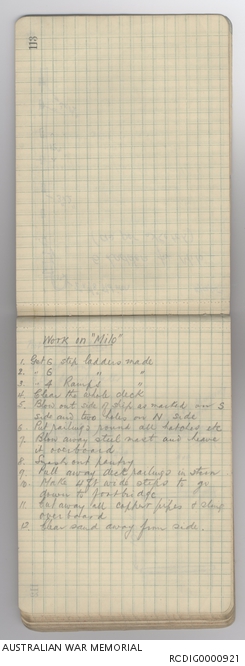 113
Work on "Milo"
1. Get 6 step ladders made
2. " 6 " "
3. " 4 Ramps "
4. Clear the whole deck
5. Blow out side of ship as marked on S
side and two holes on N. side
6. Put railings round all hatches etc
7. Blow away steel mast and heave
it overboard
8. Smash out pantry
9. Pull away steel railings in stern
10. Make 4 ft wide steps to go
down to footbridge
11. Cut away all copper pipes & sling
overboard
12. Clear sand away from side.
AUSTRALIAN WAR MEMORIAL
RCDIG0000921